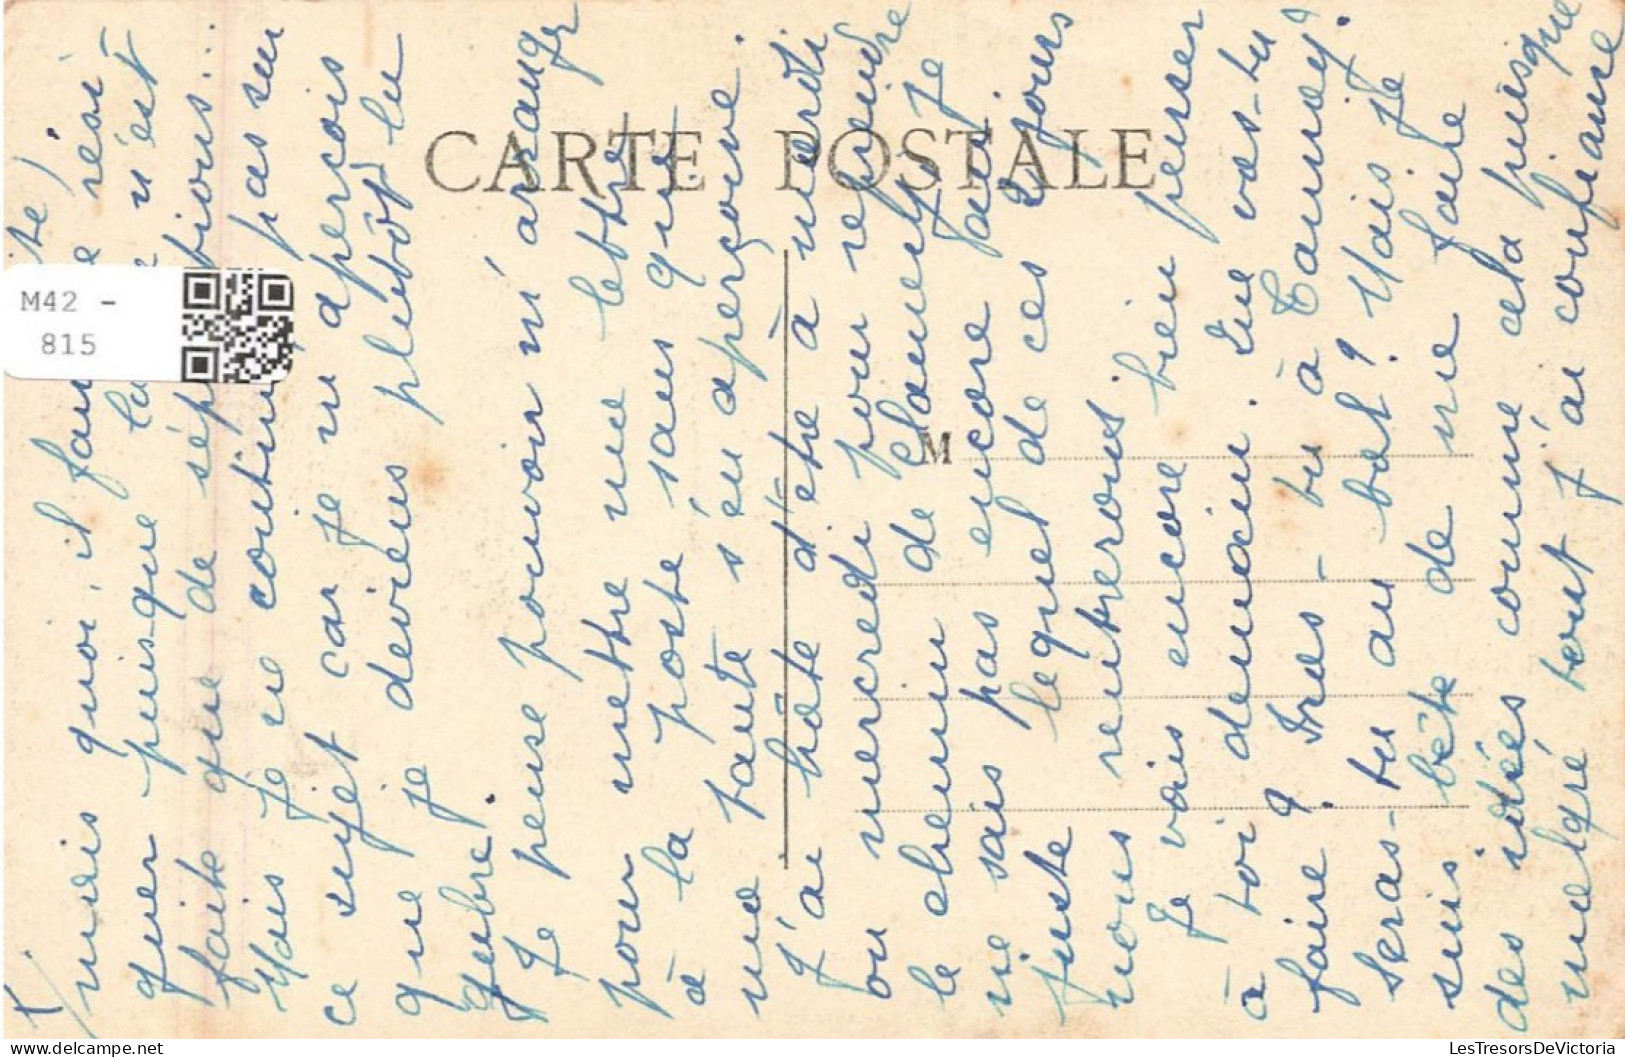 CARTE POSTALE
M
M42 -
815
mais quoi, il faut se rési
gner puisque la vie n'est
faite que de séparations...
Mais je ne continue pas sur
ce sujet car je m'aperçois
que je deviens plutôt lu
gubre.
Je pense pouvoir m'arranger
pour mettre une lettre
à la poste sans que
ma tante s'en aperçoive.
J'ai hâte d'être à mardi
ou mercredi pour reprendre
le chemin de Clamecy. Je
ne sais pas encore au
juste lequel de ces 2 jours
nous rentrerons.
Je vais encore bien penser
à toi demain. Que vas-tu
faire ? Iras-tu à Tannay ?
Seras-tu au bal ? Mais je
suis bête de me faire
des idées comme cela puisque
malgré tout j'ai confiance
LesTresorsDeVictoria